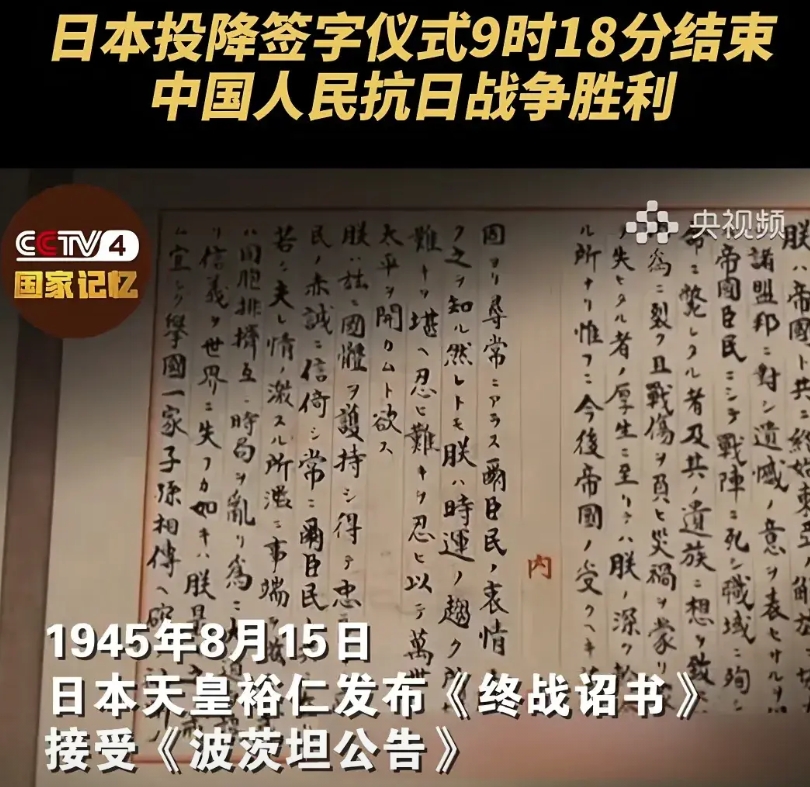 日本投降签字仪式9时18分结束
中国人民抗日战争胜利
CCTV4
国家记忆
央视频
朕ハ帝國ト共ニ終始東亞ノ解放ニ
諸盟邦ニ對シ遺憾ノ意ヲ表セサルヲ
帝國臣民ニシテ戰陣ニ死シ職域ニ殉シ
命ニ斃レタル者及其ノ遺族ニ想ヲ致
為ニ裂ク且戰傷ヲ負ヒ災禍ヲ蒙リ
失ヒタル者ノ厚生ニ至リテハ朕ノ深ク
ル所ナリ惟フニ今後帝國ノ受クヘキ
内
固ヨリ尋常ニアラス爾臣民ノ衷情
ク之ヲ知ル然レトモ朕ハ時運ノ趨ク
難キヲ堪ヘ忍ヒ難キヲ忍ヒ以テ萬
太平ヲ開カムト欲ス
朕ハ茲ニ國體ヲ護持シ得テ忠
民ノ赤誠ニ信倚シ常ニ爾臣民
若シ夫レ情ノ激スル所濫ニ事端ヲ
ハ同胞排擠互ニ時局ヲ亂リ為ニ
リ信義ヲ世界ニ失フカ如キハ朕
ム宜シク擧國一家子孫相傳ヘ確
1945年8月15日
日本天皇裕仁发布《终战诏书》
接受《波茨坦公告》